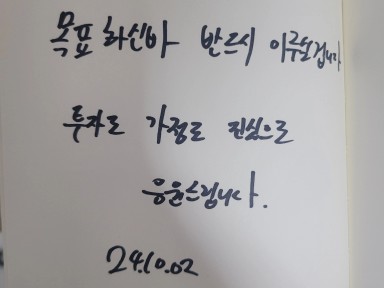 목표 하신바 반드시 이루실겁니다
투자도 가정도 진심으로
응원드립니다.
24.10.02